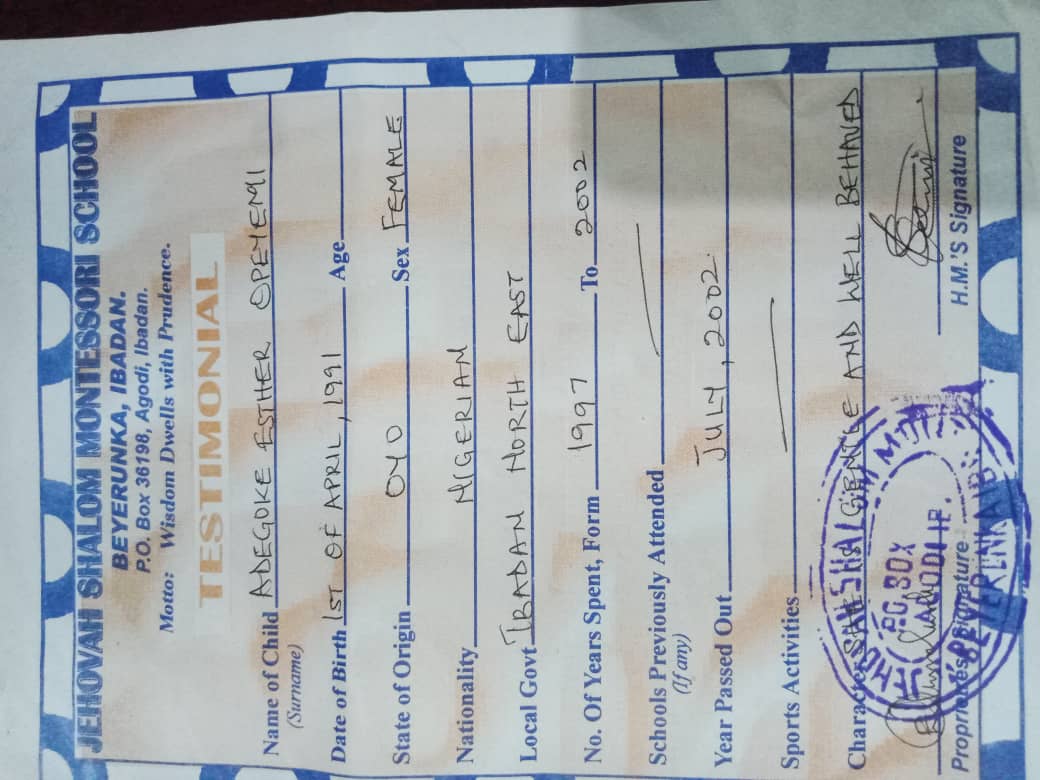 JEHOVAH SHALOM MONTESSORI SCHOOL
BEYERUNKA, IBADAN.
P.O. Box 36198, Agodi, Ibadan.
Motto: Wisdom Dwells with Prudence.
TESTIMONIAL
Name of Child ADEGOKE ESTHER OPEYEMI
(Surname)
Date of Birth 1ST OF APRIL, 1991 Age
State of Origin OYO Sex FEMALE
Nationality NIGERIAN
Local Govt IBADAN NORTH EAST
No. Of Years Spent, Form 1997 To 2002
Schools Previously Attended
(If any)
Year Passed Out JULY, 2002.
Sports Activities
Character SHE IS GENTLE AND WELL BEHAVED
Proprietress Signature H.M.'S Signature
JEHOVAH SHALOM
P.O. BOX
AGODI IB.